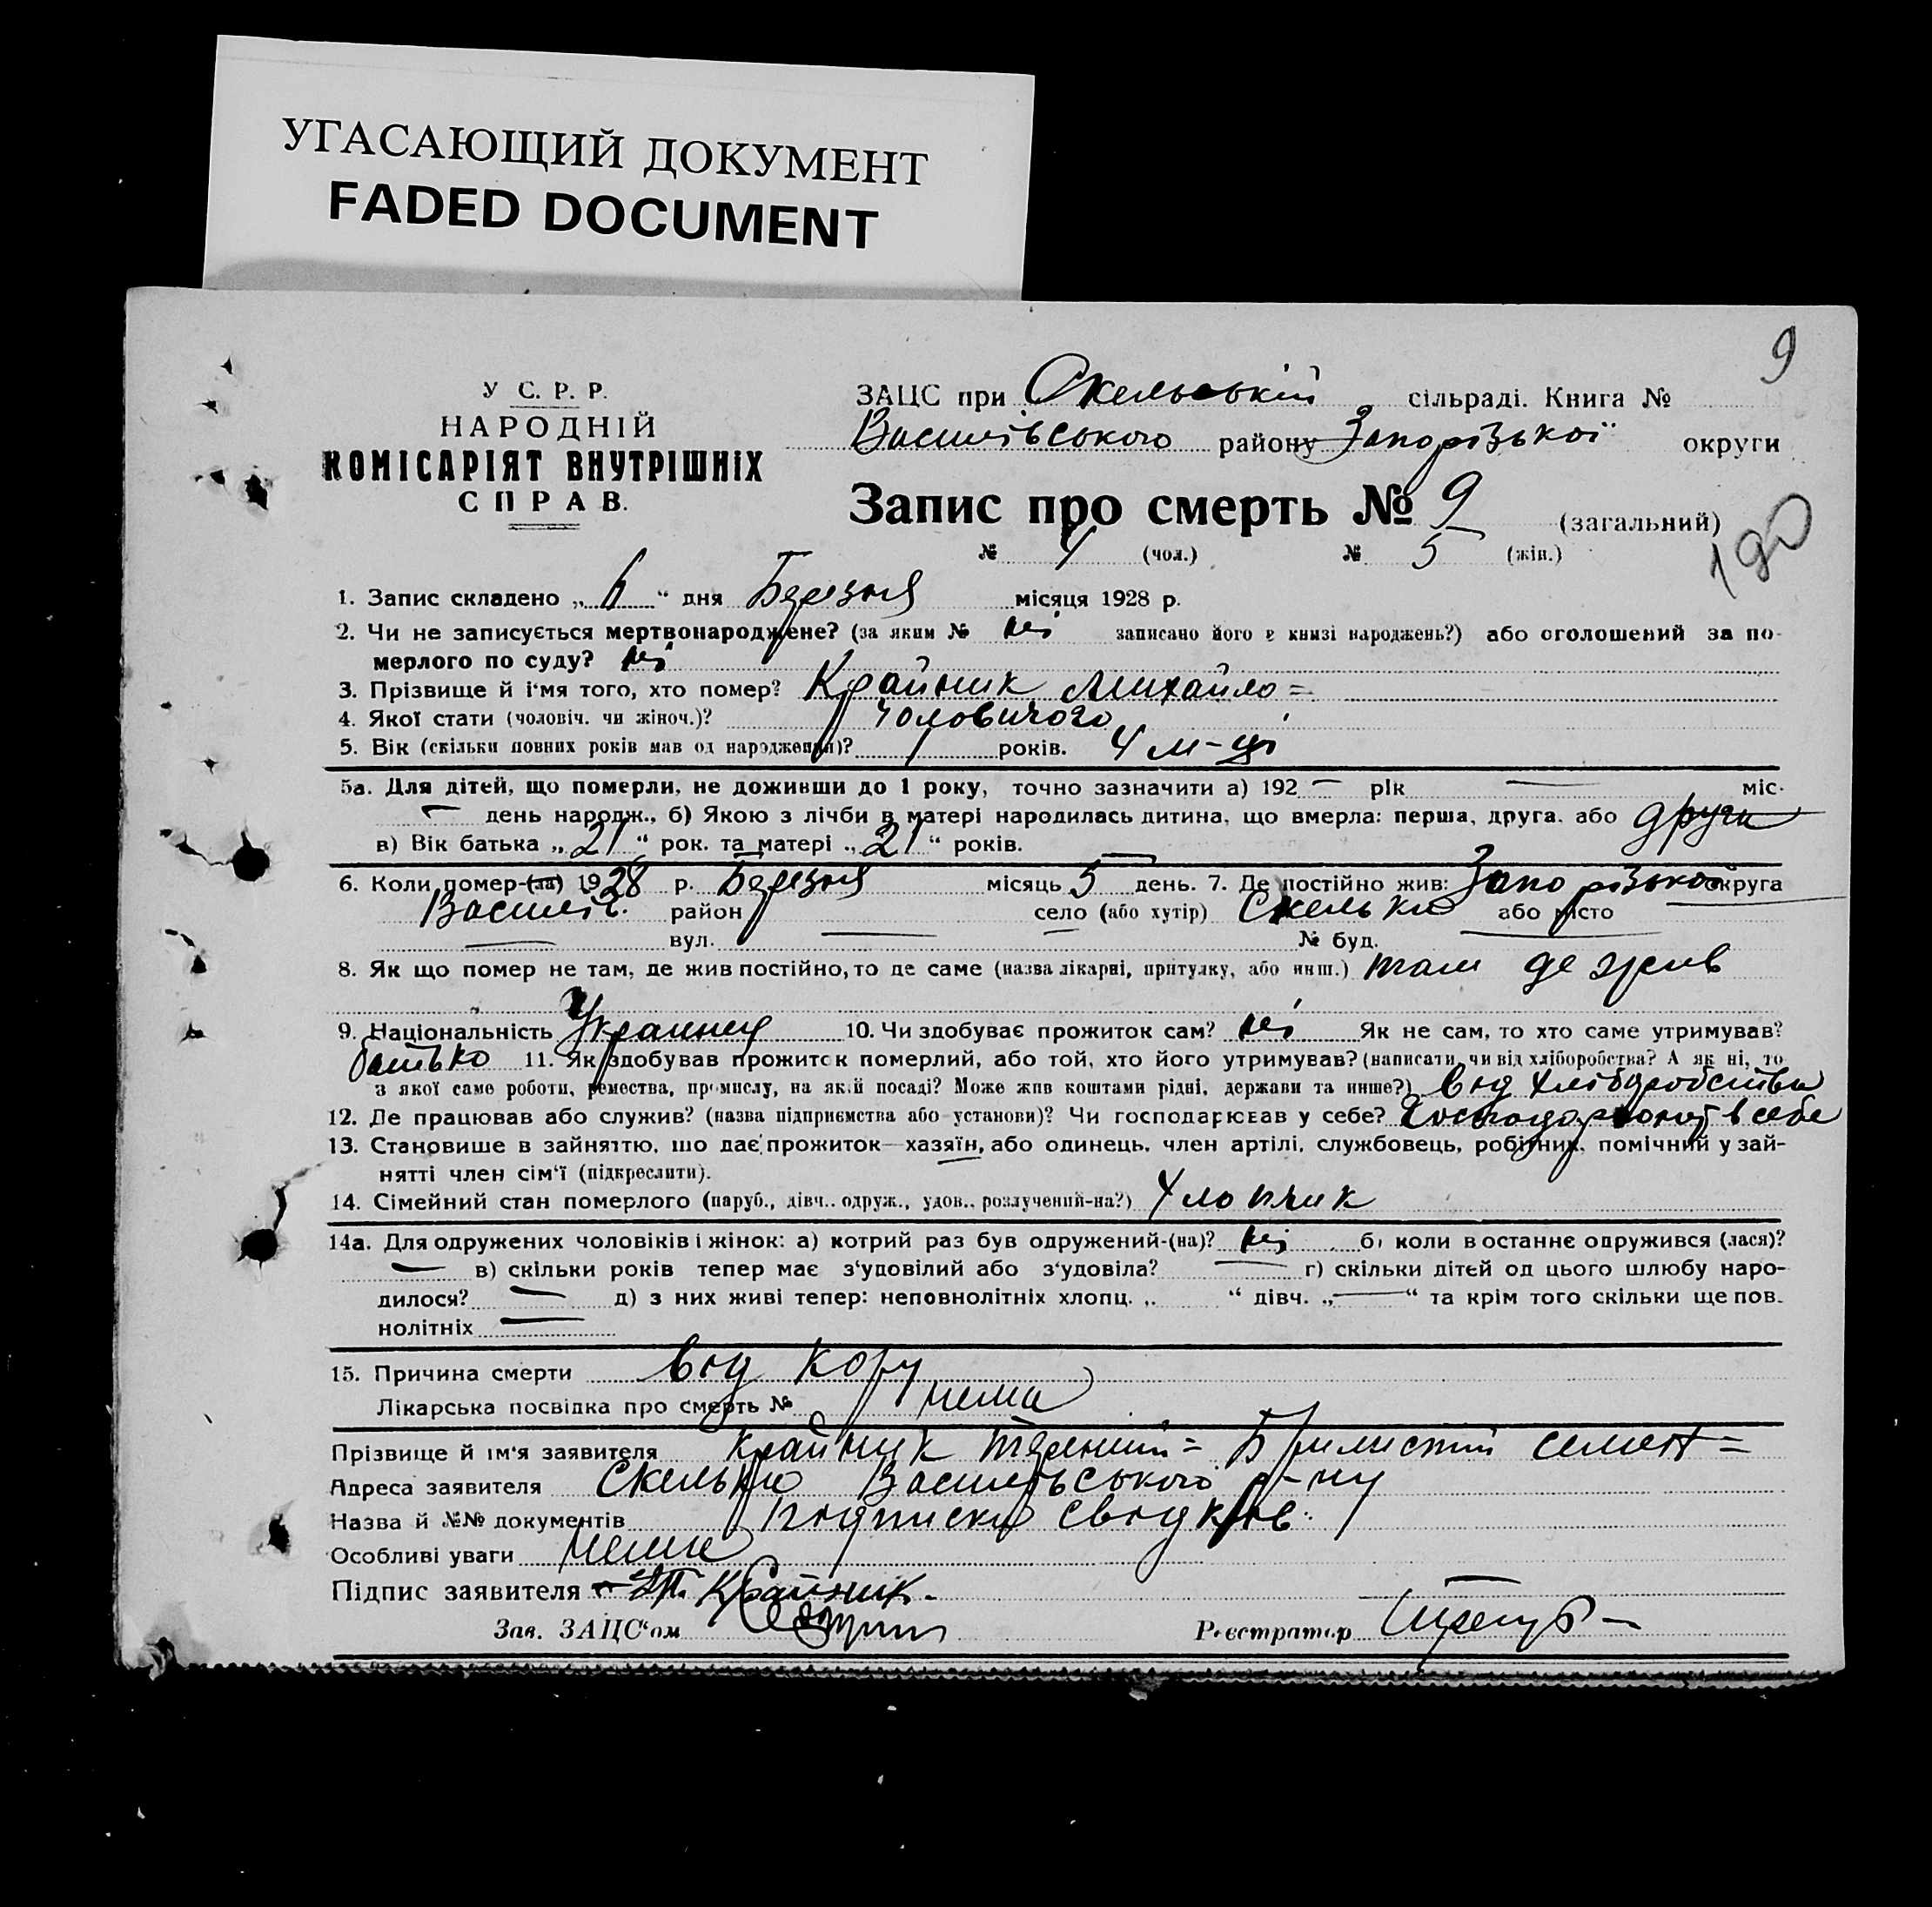 УГАСАЮЩИЙ ДОКУМЕНТ
FADED DOCUMENT
9
У С. Р. Р.
НАРОДНІЙ
КОМІСАРІЯТ ВНУТРІШНІХ
СПРАВ.
ЗАЦС при Скельській сільраді. Книга №
Василівського району Запорізької округи
Запис про смерть № 9 (загальний)
№ 4 (чол.) № 5 (жін.)
190
1. Запис складено „6“ дня Березня місяця 1928 р.
2. Чи не записується мертвонароджене? (за яким № ні записано його в книзі народжень?) або оголошений за по-
мерлого по суду? ні
3. Прізвище й і'мя того, хто помер? Крайник Михайло =
4. Якої стати (чоловіч. чи жіноч.)? чоловичого
5. Вік (скільки повних років мав од народження)? 1 років. 4 м-ці
5а. Для дітей, що померли, не доживши до 1 року, точно зазначити а) 192 — рік — міс.
— день народж., б) Якою з лічби в матері народилась дитина, що вмерла: перша, друга, або друга
в) Вік батька „21“ рок. та матері „21“ років.
6. Коли помер-(ла) 1928 р. Березня місяць 5 день. 7. Де постійно жив: Запорізької округа
Василів. район село (або хутір) Скельки або місто
— вул. — № буд. —
8. Як що помер не там, де жив постійно, то де саме (назва лікарні, притулку, або инш.) там де жив
9. Національність Украинец 10. Чи здобуває прожиток сам? ні Як не сам, то хто саме утримував?
батько 11. Як здобував прожиток померлий, або той, хто його утримував? (написати, чи від хліборобства? А як ні, то
з якої саме роботи, ремества, промислу, на якій посаді? Може жив коштами рідні, держави та инше?) від хліборобства
12. Де працював або служив? (назва підприємства або установи)? Чи господарював у себе? в себе
13. Становище в зайняттю, що дає прожиток—хазяїн, або одинець, член артілі, службовець, робітник, помічний у зай-
нятті член сім'ї (підкреслити).
14. Сімейний стан померлого (паруб., дівч.. одруж., удов., розлучений-на?) хлопчик
14а. Для одружених чоловіків і жінок: а) котрий раз був одружений-(на)? ні б) коли в останнє одружився (лася)?
— в) скільки років тепер має з'удовілий або з'удовіла? — г) скільки дітей од цього шлюбу наро-
дилося? — д) з них живі тепер: неповнолітніх хлопц. „ “ дівч. „—“ та крім того скільки ще пов.
нолітніх —
15. Причина смерти від кору
Лікарська посвідка про смерть № нема
Прізвище й ім'я заявителя Крайник = Семен =
Адреса заявителя Скельки Василівського р-ну
Назва й №№ документів підписки свідків.
Особливі уваги нема
Підпис заявителя Крайник.
Зав. ЗАЦС'ом
Реєстратор